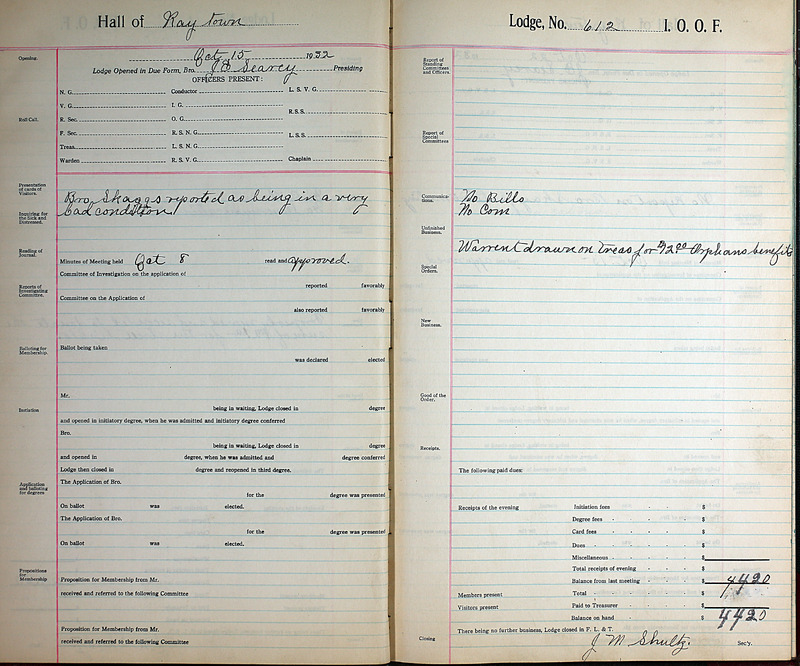 Hall of Raytown
Opening.
Oct 15 1932
Lodge Opened in Due Form, Bro. J E Searcy Presiding
OFFICERS PRESENT:
N. G. Conductor L. S. V. G.
V. G. I. G. R.S.S.
Roll Call. R. Sec. O. G.
F. Sec. R. S. N. G. L.S.S.
Treas. L. S. N. G.
Warden R. S. V. G. Chaplain
Presentation of cards of Visitors.
Bro. Skaggs reported as being in a very
Inquiring for the Sick and Distressed.
bad condition
Reading of Journal.
Minutes of Meeting held Oct 8 read and approved.
Committee of Investigation on the application of
Reports of Investigating Committee.
reported favorably
Committee on the Application of
also reported favorably
Balloting for Membership.
Ballot being taken
was declared elected
Mr.
Initiation
being in waiting, Lodge closed in degree
and opened in initiatory degree, when he was admitted and initiatory degree conferred
Bro.
being in waiting, Lodge closed in degree
and opened in degree, when he was admitted and degree conferred
Lodge then closed in degree and reopened in third degree.
Application and balloting for degrees
The Application of Bro.
for the degree was presented
On ballot was elected.
The Application of Bro.
for the degree was presented
On ballot was elected.
Propositions for Membership
Proposition for Membership from Mr.
received and referred to the following Committee
Proposition for Membership from Mr.
received and referred to the following Committee
Lodge, No. 612 I. O. O. F.
Report of Standing Committees and Officers.
Report of Special Committees
Communications.
No Bills
No Com
Unfinished Business.
Warrent drawn on Treas for $2.00 Orphans benefits
Special Orders.
New Business.
Good of the Order.
Receipts.
The following paid dues:
Receipts of the evening Initiation fees $
Degree fees $
Card fees $
Dues $
Miscellaneous $
Total receipts of evening $
Balance from last meeting $ 4420
Members present Total $
Visitors present Paid to Treasurer $
Balance on hand $ 4420
There being no further business, Lodge closed in F. L. & T.
Closing J M Shultz Sec'y.